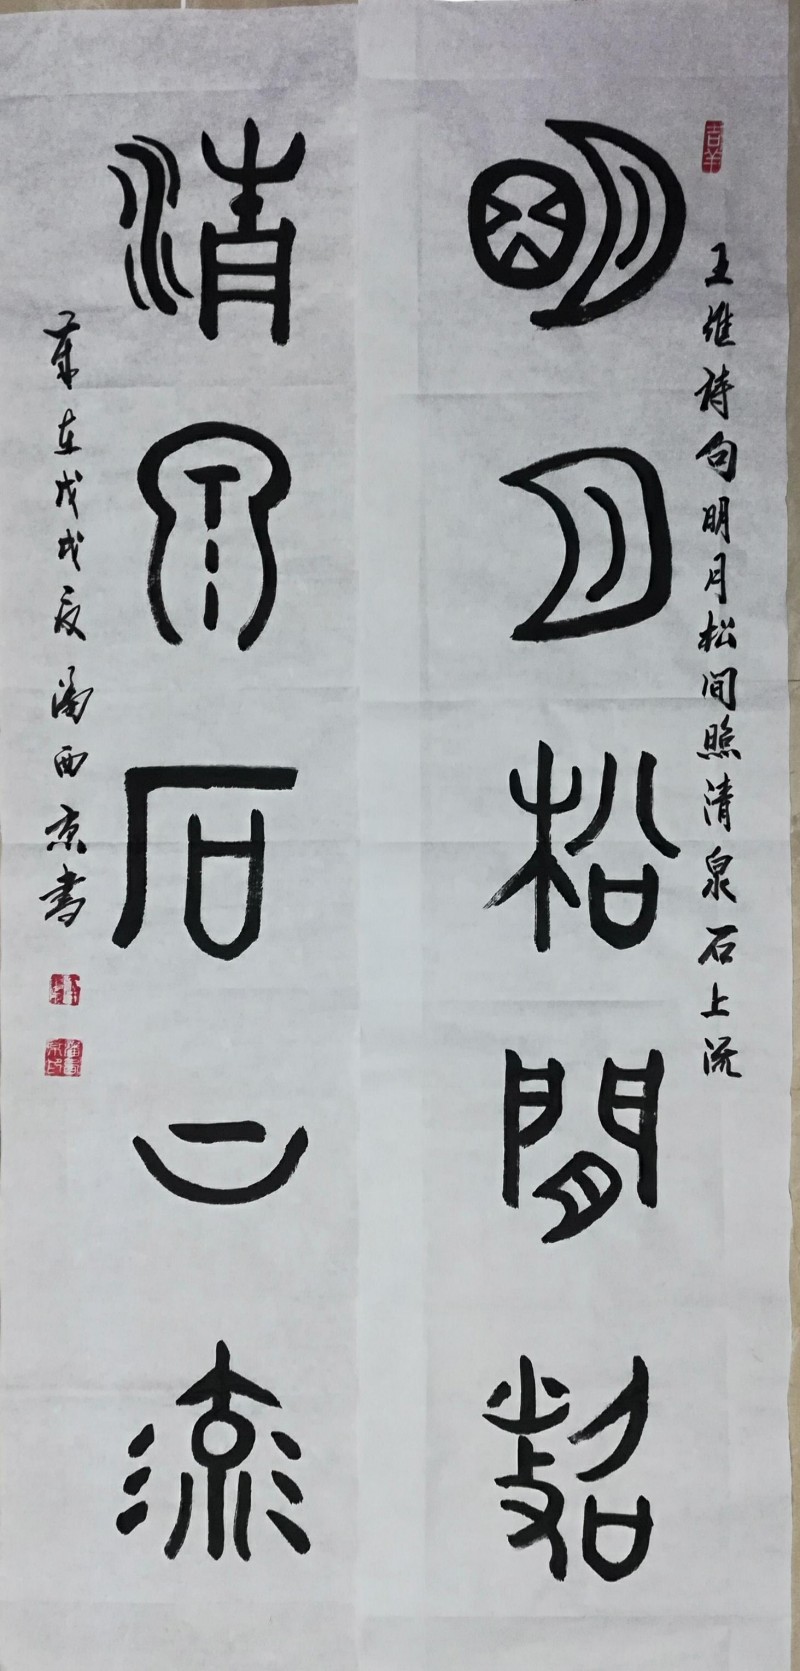 吉羊
王维诗句明月松间照清泉石上流
明月松間照
清泉石上流
岁在戊戌夏潘西京书